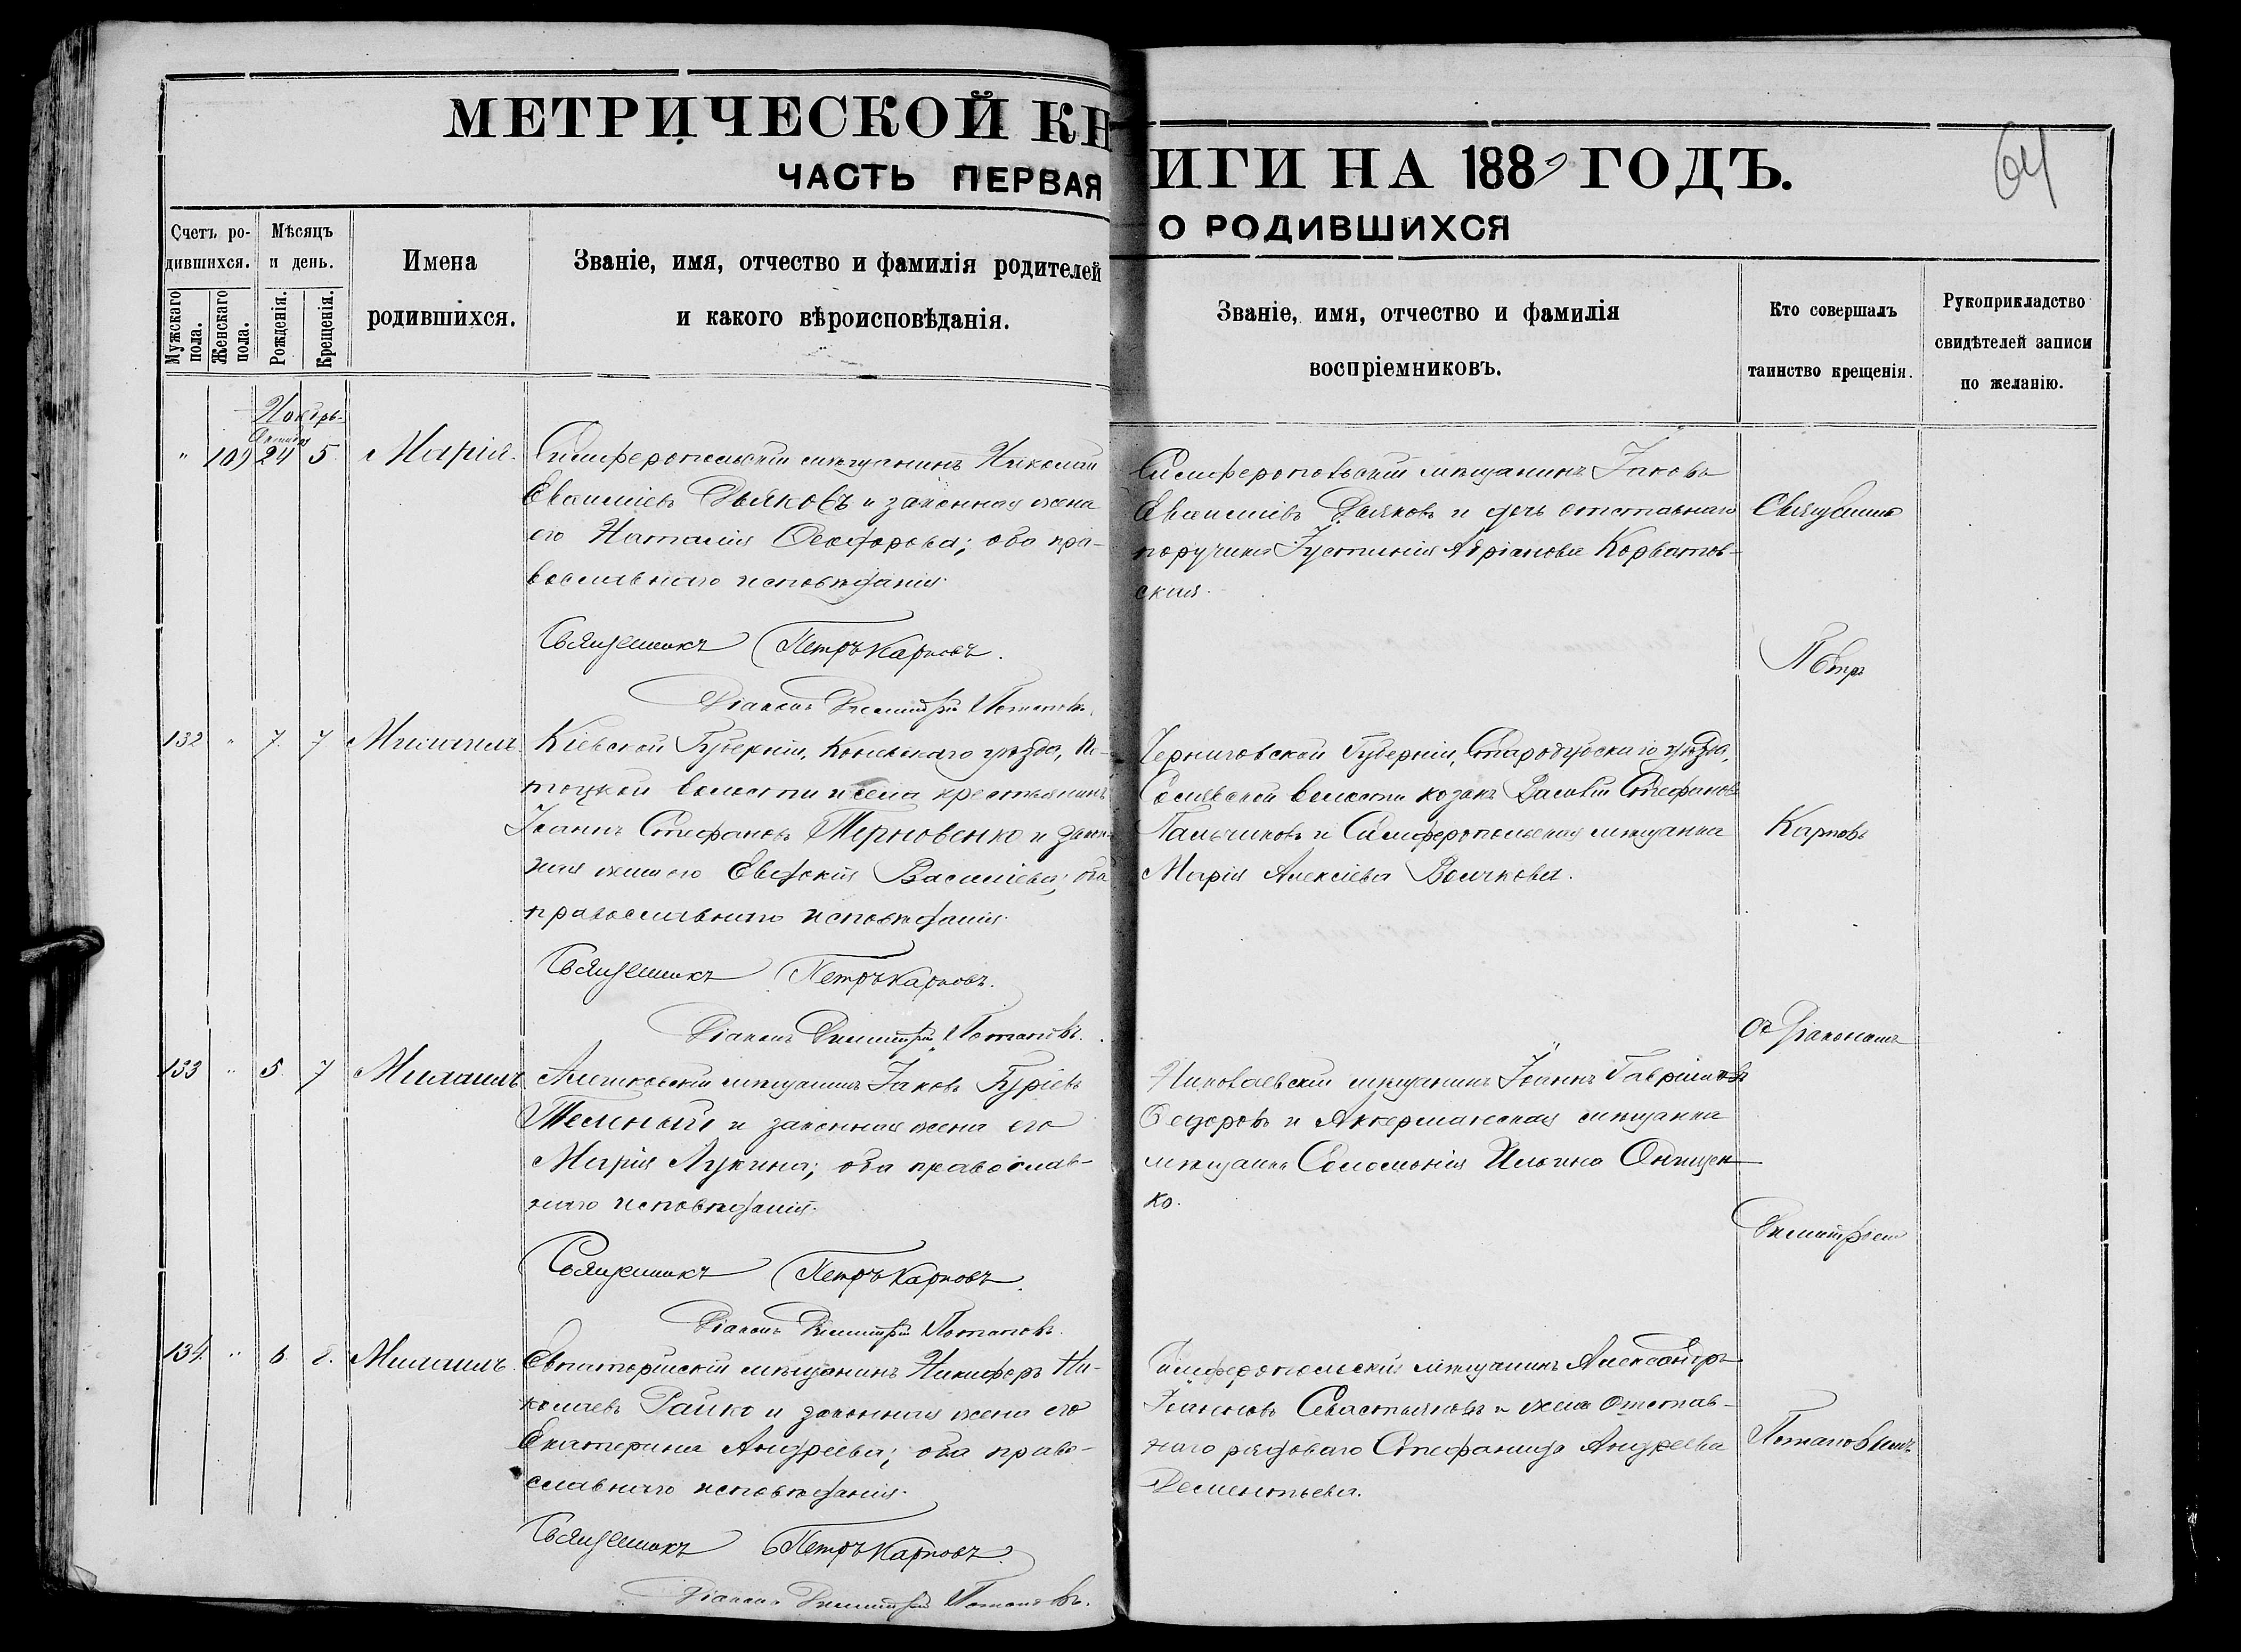 МЕТРИЧЕСКОЙ КНИГИ НА 1889 ГОДЪ.
64
ЧАСТЬ ПЕРВАЯ О РОДИВШИХСЯ
Счетъ родившихся.
Мужскаго пола.
Женскаго пола.
Мѣсяцъ и день.
Рожденія.
Крещенія.
Имена
родившихся.
Званіе, имя, отчество и фамилія родителей
и какого вѣроисповѣданія.
Званіе, имя, отчество и фамилія
воспріемниковъ.
Кто совершалъ
таинство крещенія.
Рукоприкладство
свидѣтелей записи
по желанію.
Ноябрь
Октября
" 109 24 5 Марія.
Симферопольскій мѣщанинъ Николай
Евсиміевъ Дьяковъ и законная жена
его Наталія Ѳеодорова; оба пра-
вославнаго исповѣданія.
Священникъ Петръ Карповъ.
Діаконъ Димитрій Потаповъ.
Симферопольскій мѣщанинъ Іаковъ
Дьяковъ и дочь отставнаго
поручика Іустинія Адріанова Корватов-
ская.
132 " 7 7 Михаилъ.
Кіевской Губерніи, Каневскаго уѣзда, По-
тоцкой волости и села крестьянинъ
Іоаннъ Стефановъ Терновенко и закон-
ная жена его Евдокія Василіева; оба
православнаго исповѣданія.
Священникъ Петръ Карповъ.
Діаконъ Димитрій Потаповъ.
Черниговской Губерніи, Стародубскаго уѣзда,
волости козакъ Василій Стефановъ
Пальчиковъ и Симферопольская мѣщанка
Марія Алексіева Волчкова.
133 " 5 7 Михаилъ
Алешковскій мѣщанинъ Іаковъ Гуріевъ
Темный и законная жена его
Марія Лукина; оба православ-
наго исповѣданія.
Священникъ Петръ Карповъ.
Діаконъ Димитрій Потаповъ.
Николаевскій мѣщанинъ Іоаннъ Гавріиловъ
Ѳедоровъ и Аккерманская мѣщанка
мѣщанка Соломонія Ильина Онищен-
ко.
134 " 6. 8. Михаилъ.
Евпаторійскій мѣщанинъ Никифоръ Ни-
колаевъ Райко и законная жена его
Екатерина Андреева; оба право-
славнаго исповѣданія.
Священникъ Петръ Карповъ.
Діаконъ Димитрій Потаповъ.
Симферопольскій мѣщанинъ Александръ
Іоанновъ Севастьяновъ и жена отстав-
наго рядоваго Стефанида Андреева
Дементьева.
Священникъ
Петръ
Карповъ
съ Діакономъ
Димитріемъ
Потаповымъ